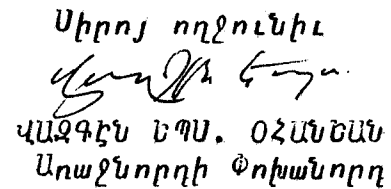 Սիրոյ ողջունիւ
ՎԱԶԳԷՆ ԵՊՍ. ՕՀԱՆԵԱՆ
Առաջնորդի Փոխանորդ